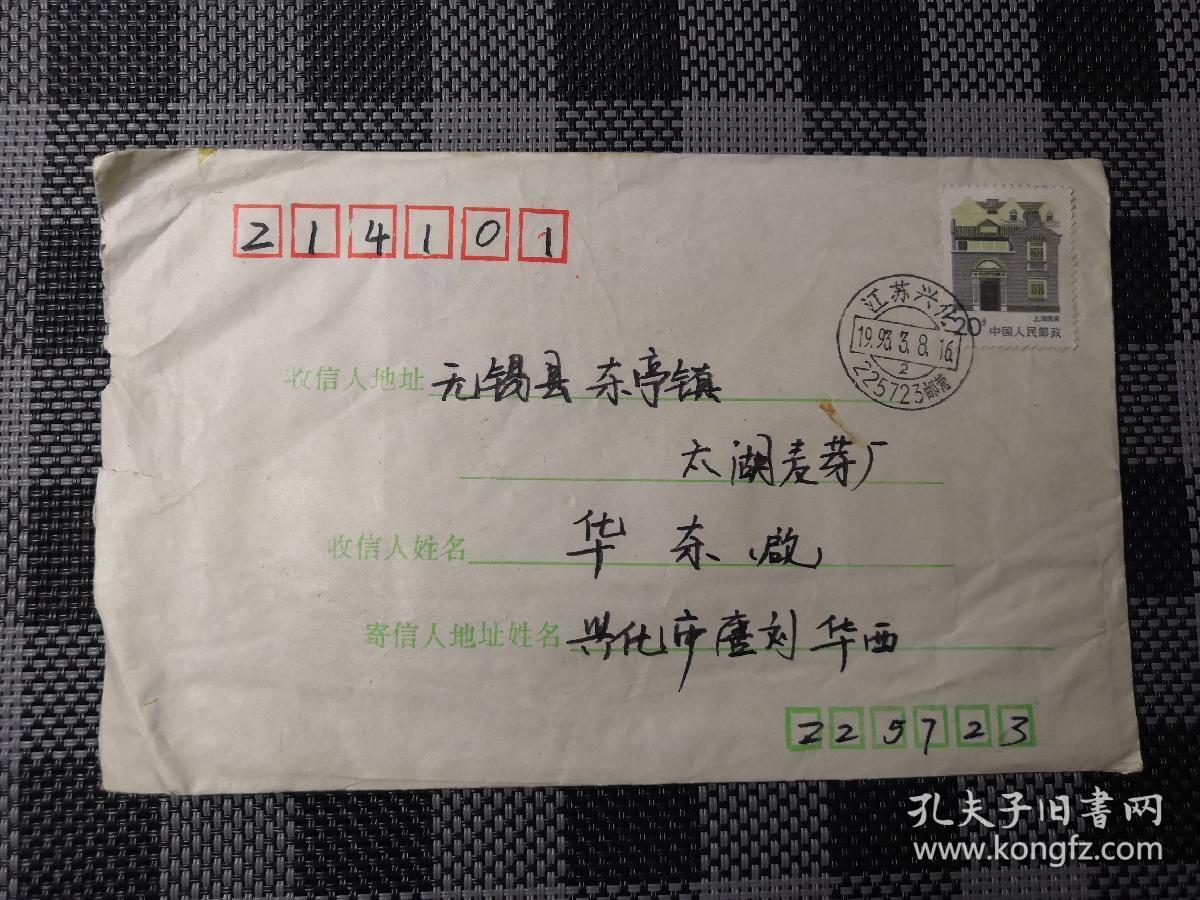 214101
上海民居
20分
中国人民邮政
江苏兴化
19.93.3.8.16
2
225723邮营
收信人地址 无锡县 东亭镇
太湖麦芽厂
收信人姓名 华东(啟)
寄信人地址姓名 兴化市唐刘 华西
225723
孔夫子旧書网
www.kongfz.com